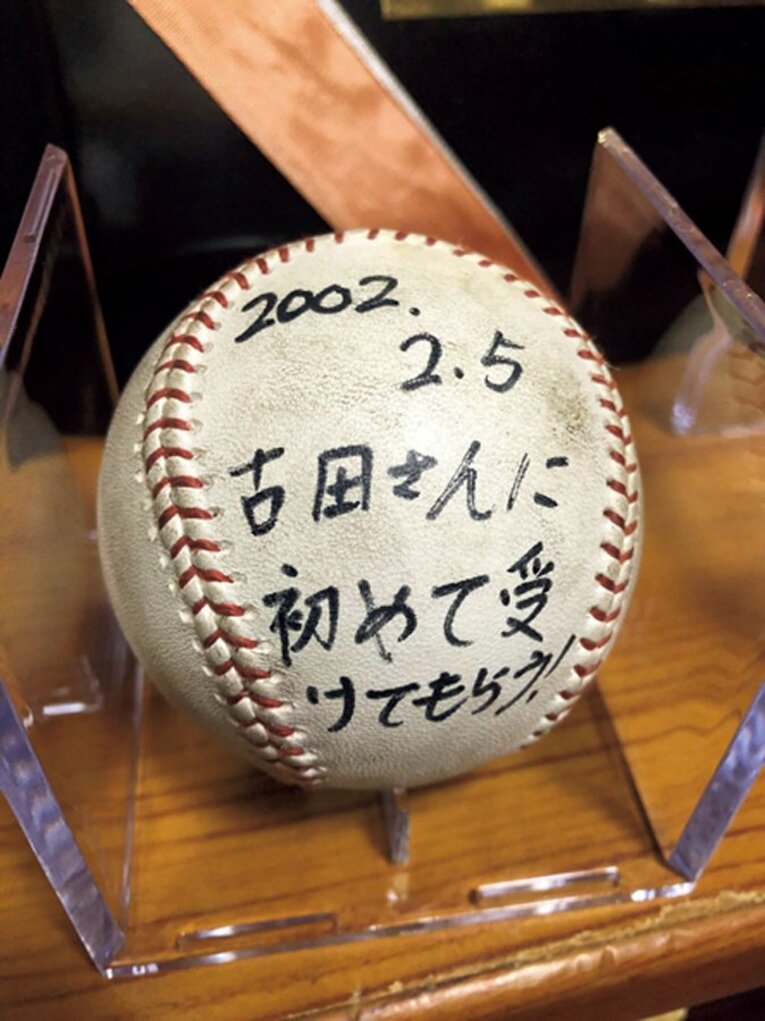 2002.
2.5
古田さんに
初めて受
けてもらう!